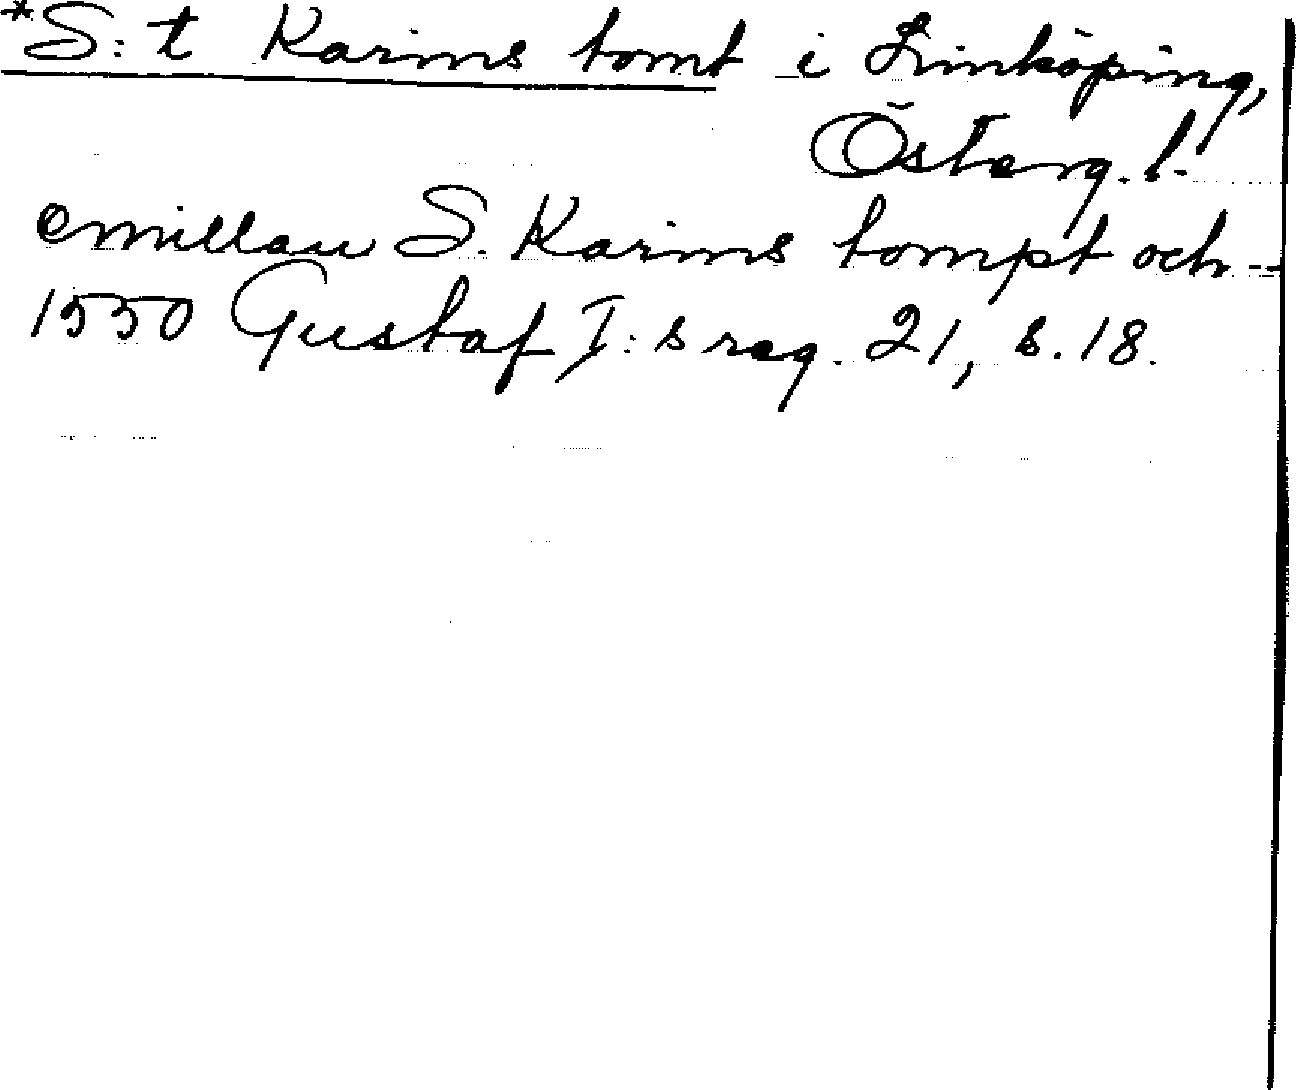 *S:t Karins tomt i Linköping,
Österg. l.
emillan S. Karins tompt och --
1550 Gustaf I:s reg. 21, s. 18.